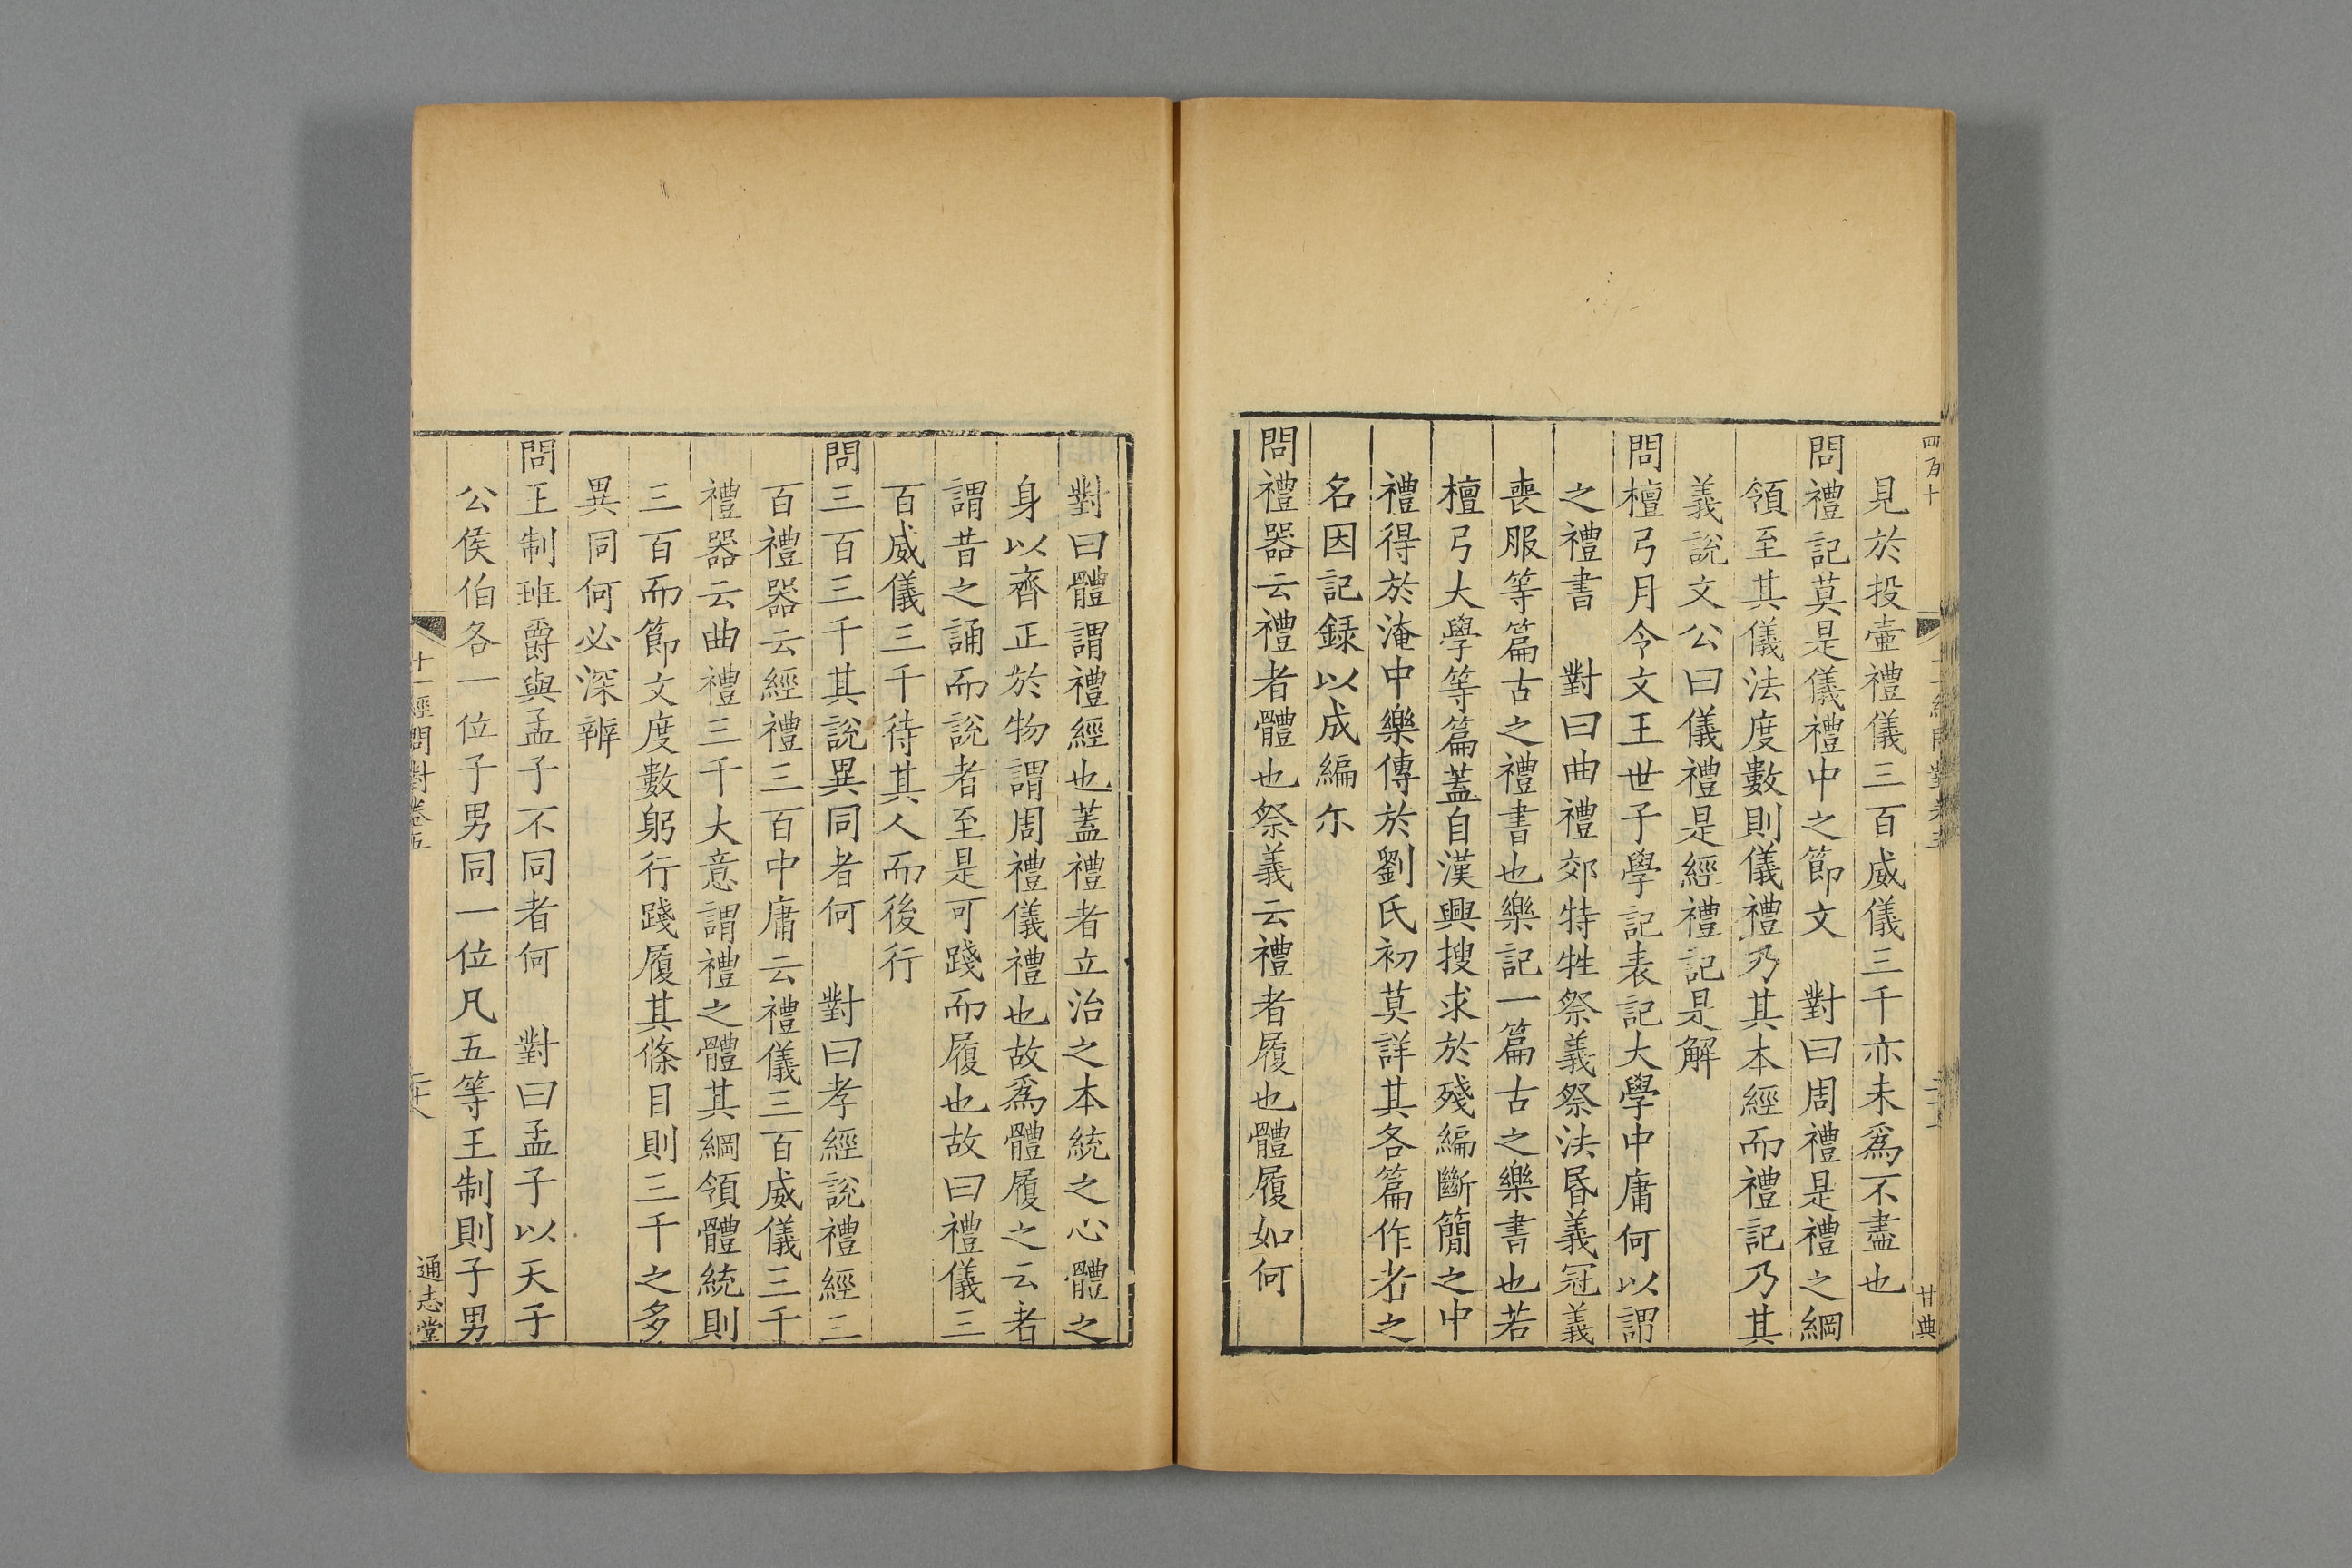 四百十
甘典
見於投壷禮儀三百威儀三千亦未爲不盡也
問禮記莫是儀禮中之節文　對曰周禮是禮之綱
領至其儀法度數則儀禮乃其本經而禮記乃其
義說文公曰儀禮是經禮記是解
問檀弓月令文王世子學記表記大學中庸何以謂
之禮書　對曰曲禮郊特牲祭義祭法昏義冠義
喪服等篇古之禮書也樂記一篇古之樂書也若
檀弓大學等篇蓋自漢興搜求於殘編斷簡之中
禮得於淹中樂傳於劉氏初莫詳其各篇作者之
名因記録以成編尓
問禮器云禮者體也祭義云禮者履也體履如何
對曰體謂禮經也蓋禮者立治之本統之心體之
身以齊正於物謂周禮儀禮也故爲體履之云者
謂昔之誦而說者至是可踐而履也故曰禮儀三
百威儀三千待其人而後行
問三百三千其說異同者何　對曰孝經說禮經三
百禮器云經禮三百中庸云禮儀三百威儀三千
禮器云曲禮三千大意謂禮之體其綱領體統則
三百而節文度數躬行踐履其條目則三千之多
異同何必深辨
問王制班爵與孟子不同者何　對曰孟子以天子
公侯伯各一位子男同一位凡五等王制則子男
十一經問對卷五
通志堂